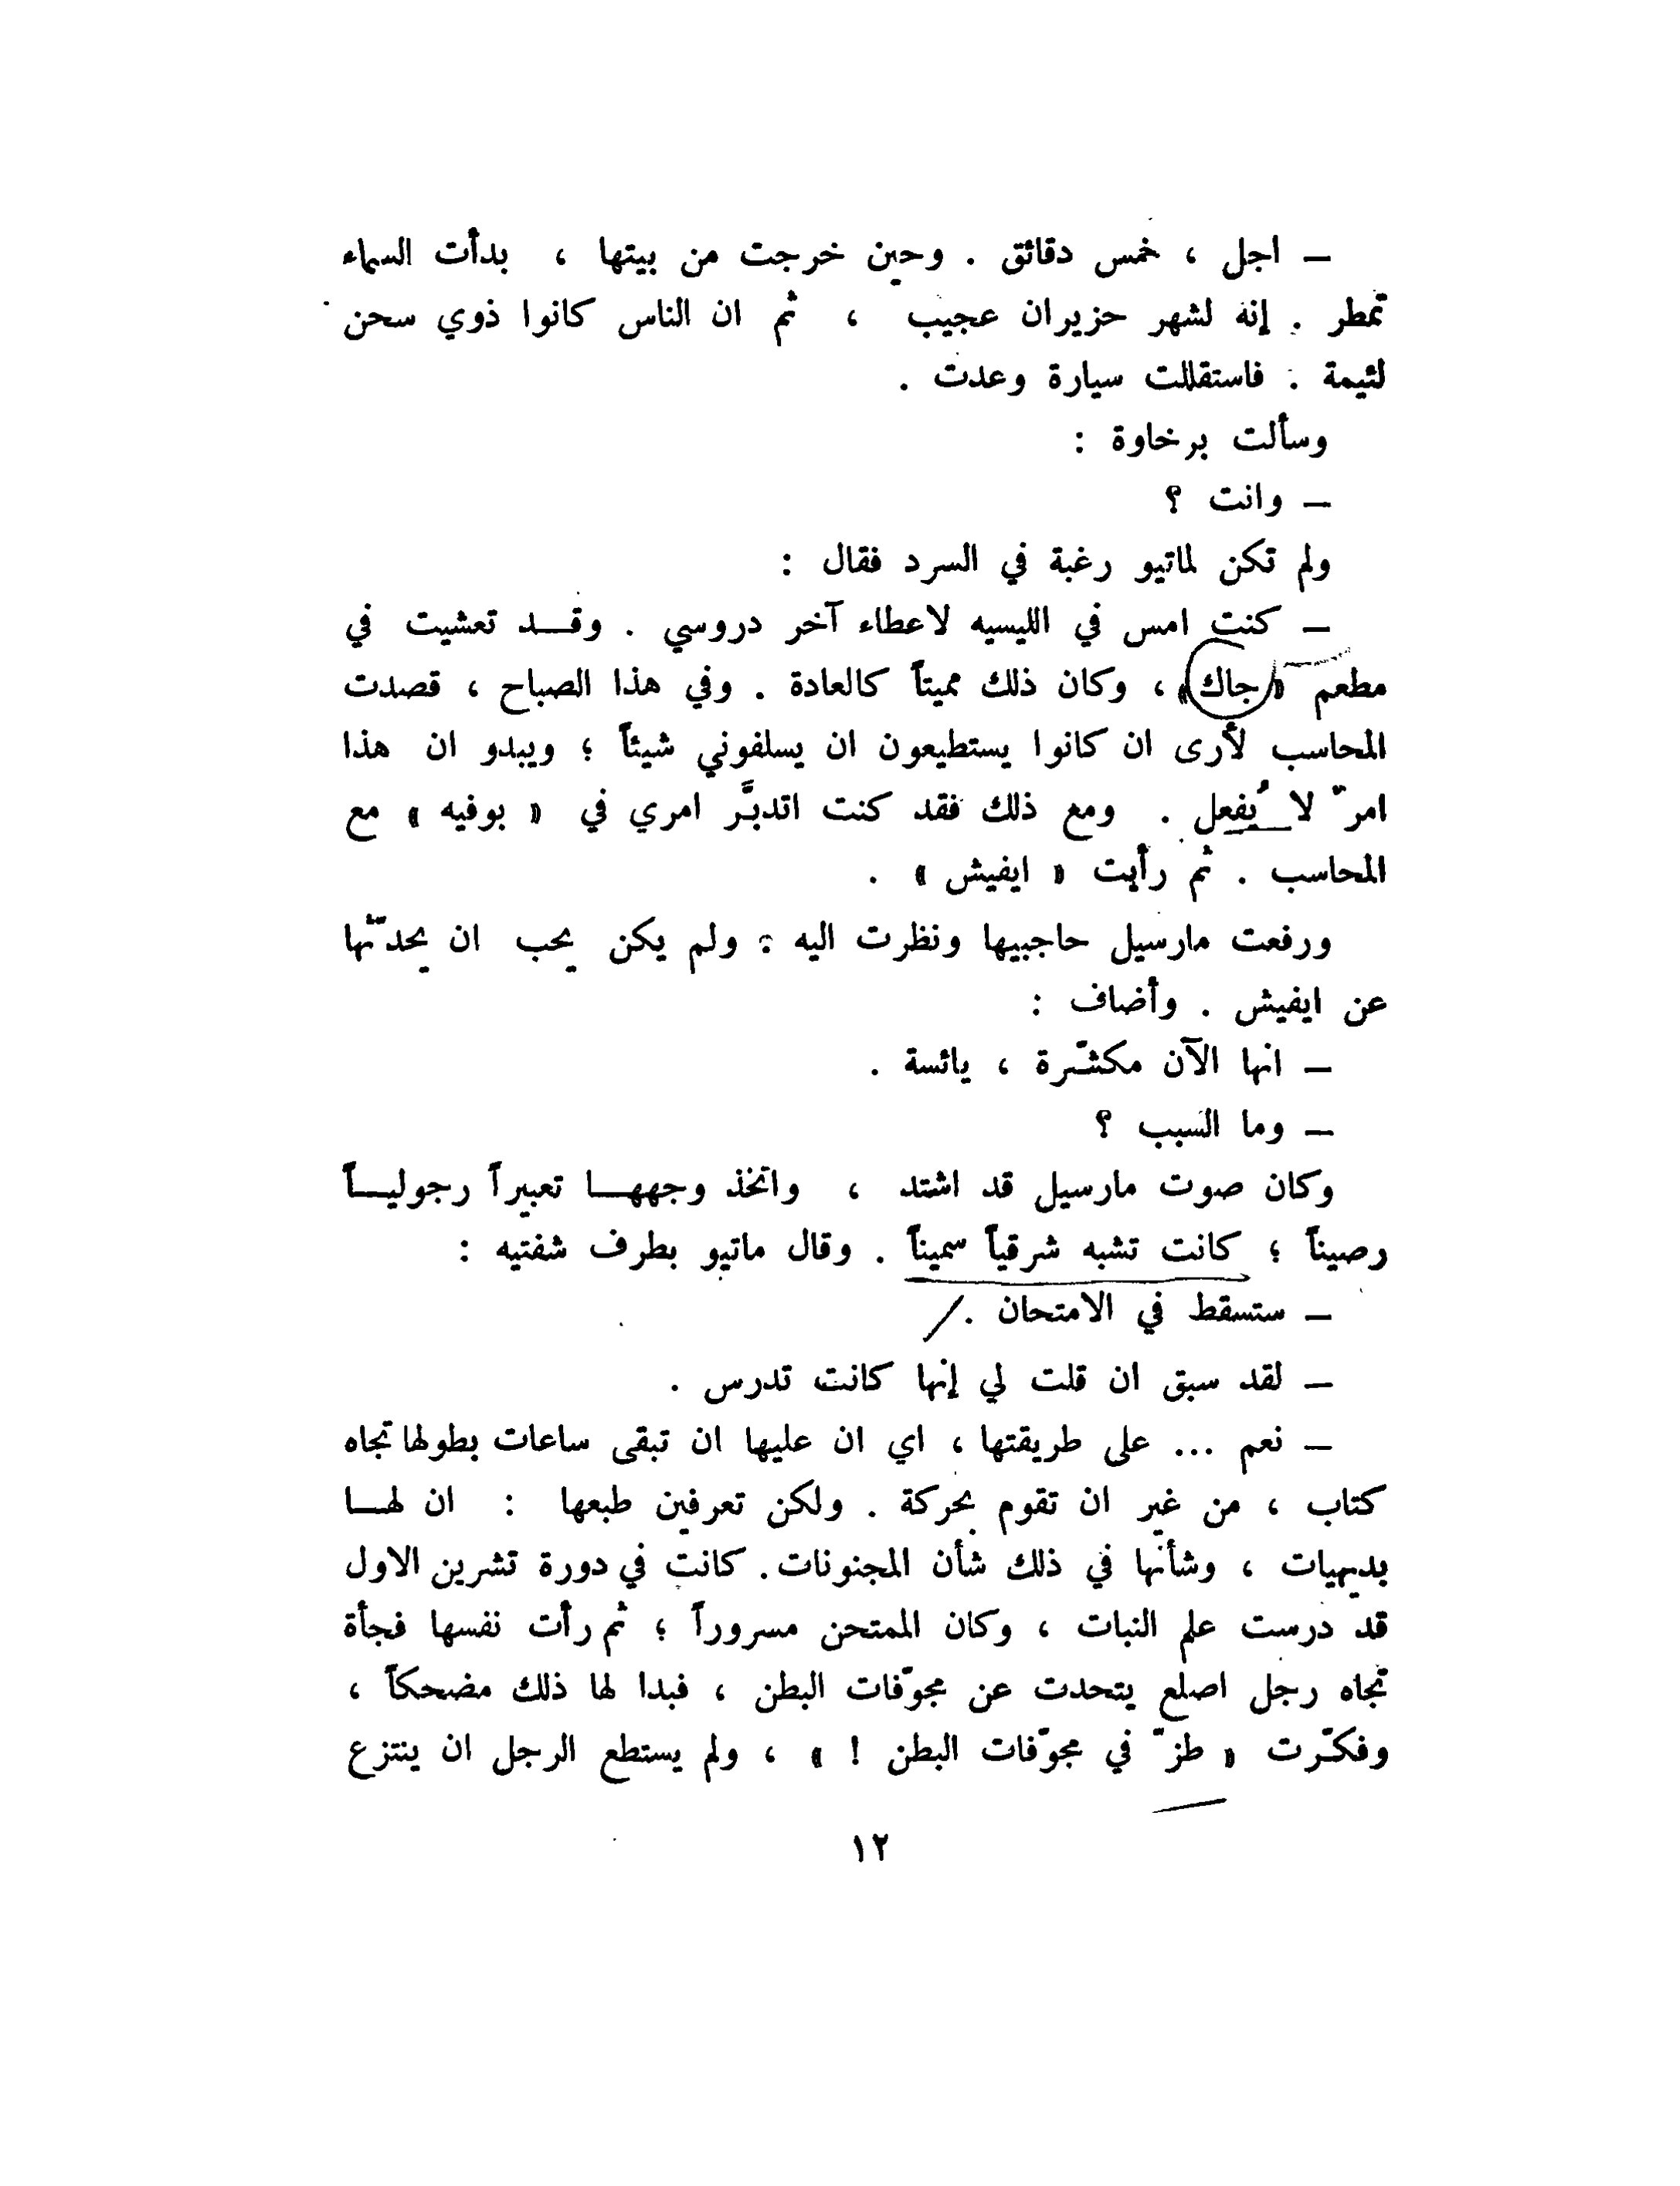 – اجل ، خمس دقائق . وحين خرجت من بيتها ، بدأت السماء
تمطر . إنه لشهر حزيران عجيب ، ثم ان الناس كانوا ذوي سحن
لئيمة . فاستقللت سيارة وعدت .
وسألت برخاوة :
– وانت ؟
ولم تكن لماتيو رغبة في السرد فقال :
– كنت امس في الليسيه لاعطاء آخر دروسي . وقـــد تعشيت في
مطعم « جاك » ، وكان ذلك مميتاً كالعادة . وفي هذا الصباح ، قصدت
المحاسب لأرى ان كانوا يستطيعون ان يسلفوني شيئاً ؛ ويبدو ان هذا
امرّ لا يُفعل . ومع ذلك فقد كنت اتدبَّر امري في « بوفيه » مع
المحاسب . ثم رأيت « ايفيش » .
ورفعت مارسيل حاجبيها ونظرت اليه : ولم يكن يحب ان يحدّثها
عن ايفيش . وأضاف :
– انها الآن مكشّرة ، يائسة .
– وما السبب ؟
وكان صوت مارسيل قد اشتد ، واتخذ وجههـــا تعبيراً رجوليـــاً
رصيناً ؛ كانت تشبه شرقياً سميناً . وقال ماتيو بطرف شفتيه :
– ستسقط في الامتحان .
– لقد سبق ان قلت لي إنها كانت تدرس .
– نعم ... على طريقتها ، اي ان عليها ان تبقى ساعات بطولها تجاه
كتاب ، من غير ان تقوم بحركة . ولكن تعرفين طبعها : ان لهـــا
بديهيات ، وشأنها في ذلك شأن المجنونات . كانت في دورة تشرين الاول
قد درست علم النبات ، وكان الممتحن مسروراً ؛ ثم رأت نفسها فجأة
تجاه رجل اصلع يتحدت عن مجوّفات البطن ، فبدا لها ذلك مضحكاً ،
وفكّرت « طزّ في مجوّفات البطن ! » ، ولم يستطع الرجل ان ينتزع
١٢